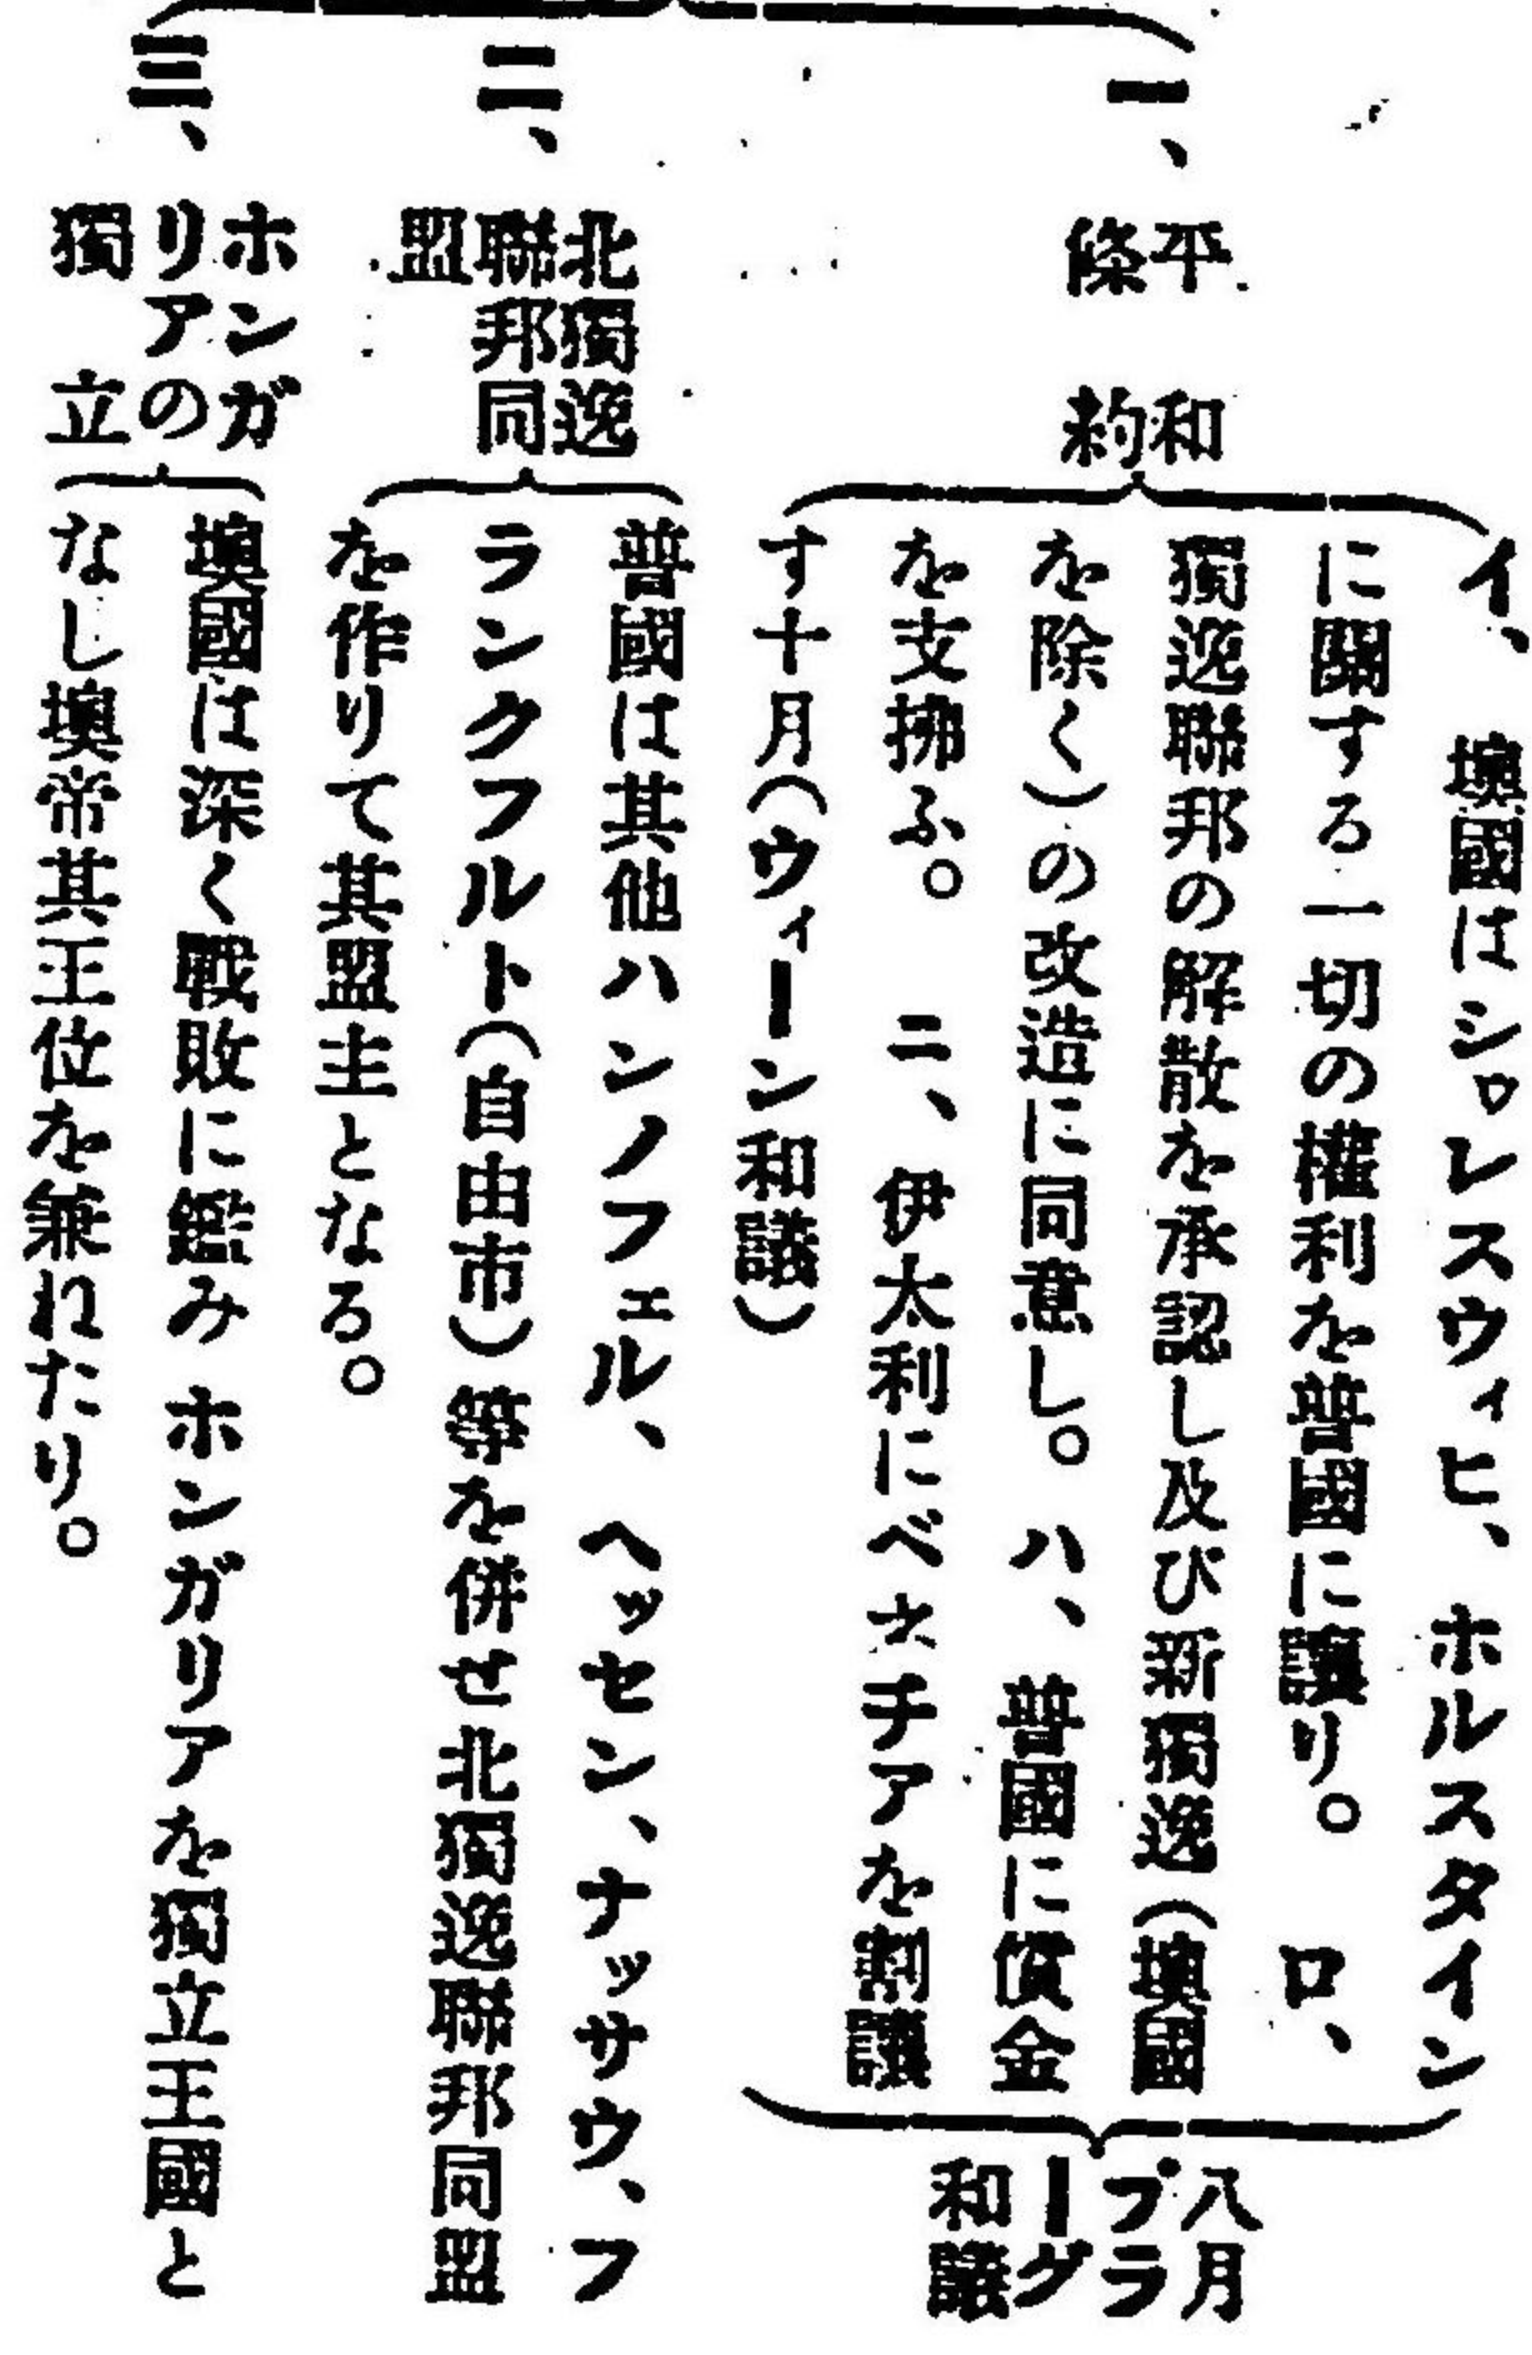 一、
平和
條約
イ、墺國はシㇿレスウィヒ、ホルスタイン
に關する一切の權利を普國に讓り。ロ、
獨逸聯邦の解散を承認し及び新獨逸(墺國
を除く)の改造に同意し。ハ、普國に償金
を支拂ふ。ニ、伊太利にベネチアを割讓
す十月(ウィーン和議)
八月
プラ
ーグ
和議
二、
北獨逸
聯邦同
盟
普國は其他ハンノフェル、ヘッセン、ナッサウ、フ
ランクフルト(自由市)等を併せ北獨逸聯邦同盟
を作りて其盟主となる。
三、
ホンガ
リアの
獨立
墺國は深く戰敗に鑑みホンガリアを獨立王國と
なし墺帝其王位を兼ねたり。